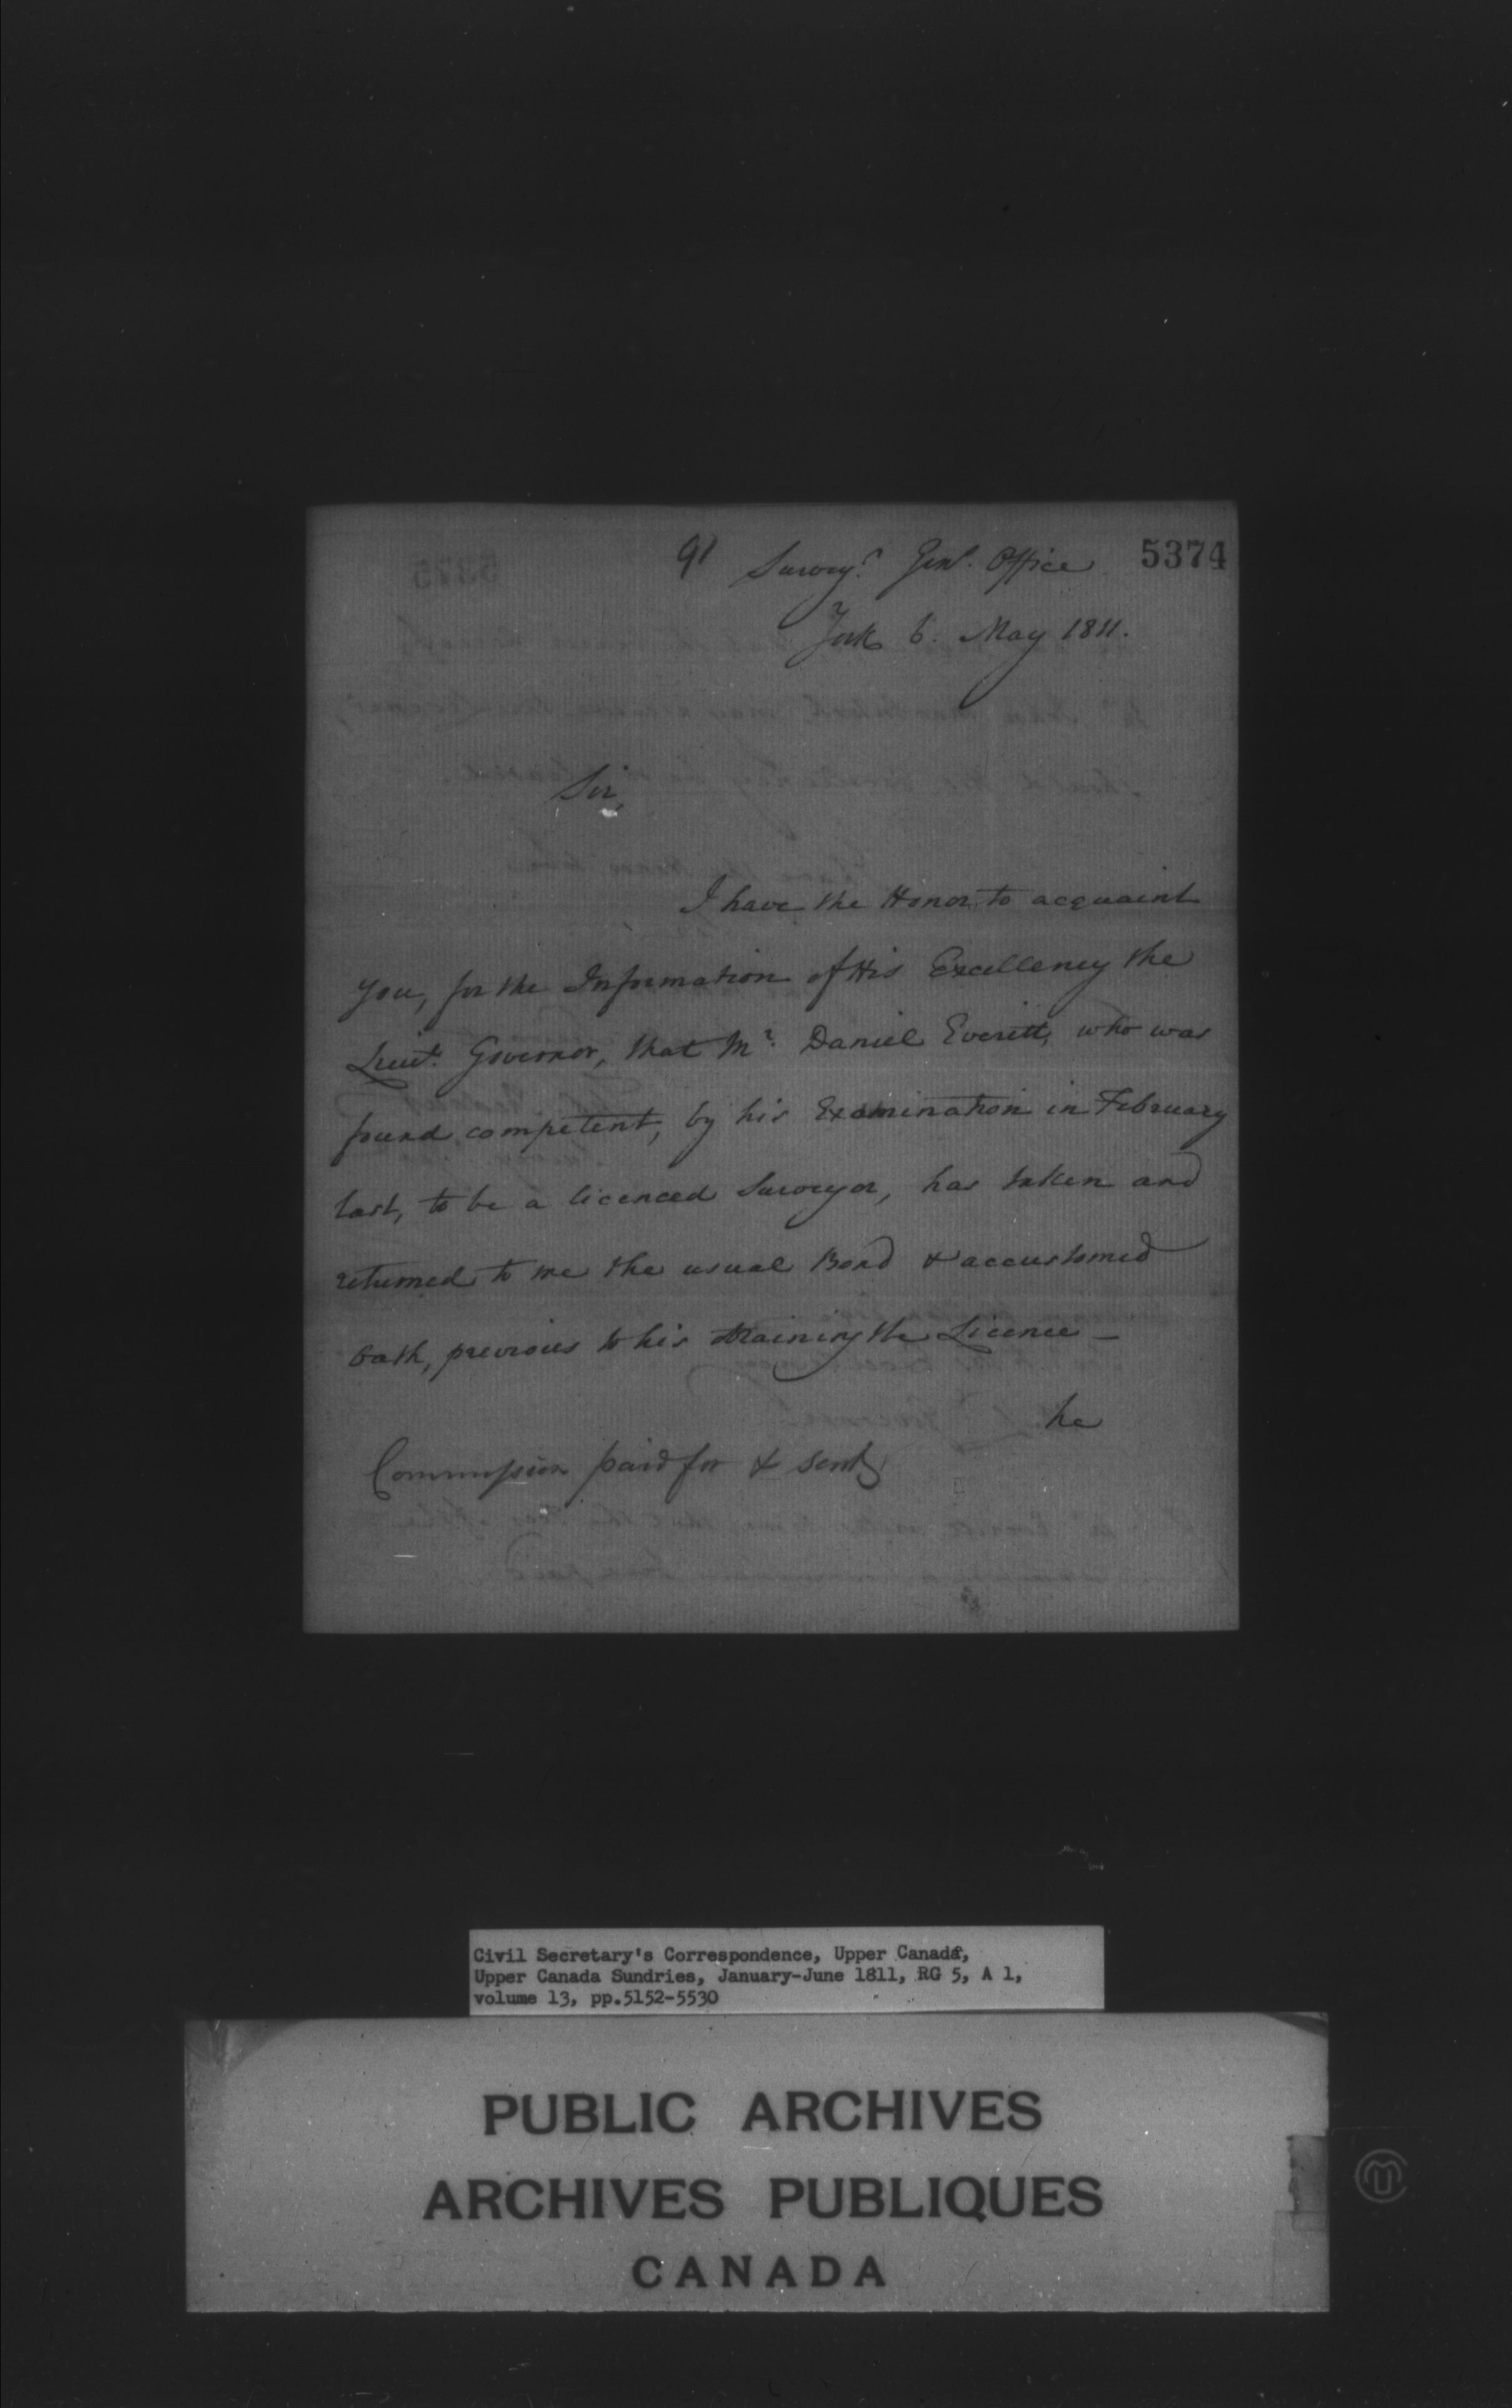 91 Survey.r Gen.l Office 5374
York 6. May 1811.
Sir,
I have the Honor to acquaint
you, for the Information of His Excellency the
Lieu.t Governor, that M.r Daniel Everitt, who was
found competent, by his Examination in February
last, to be a licenced Surveyor, has taken and
returned to me the usual Bond & accustomed
Oath, previous to his obtaining the Licence —
he
Commission paid for & sent
Civil Secretary's Correspondence, Upper Canada,
Upper Canada Sundries, January-June 1811, RG 5, A 1,
volume 13, pp.5152-5530
PUBLIC ARCHIVES
ARCHIVES PUBLIQUES
CANADA